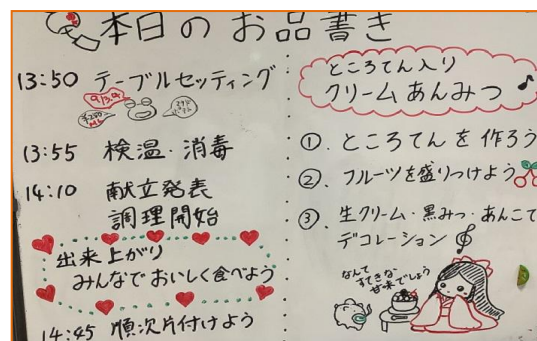 本日のお品書き
13:50 テーブルセッティング
13:55 検温・消毒
14:10 献立発表
調理開始
出来上がり
みんなでおいしく食べよう
14:45 順次片付けよう
ところてん入り
クリームあんみつ
①. ところてんを作ろう
②. フルーツを盛りつけよう
③. 生クリーム・黒みつ・あんこで
デコレーション
なんて
すてきな
甘味でしょう